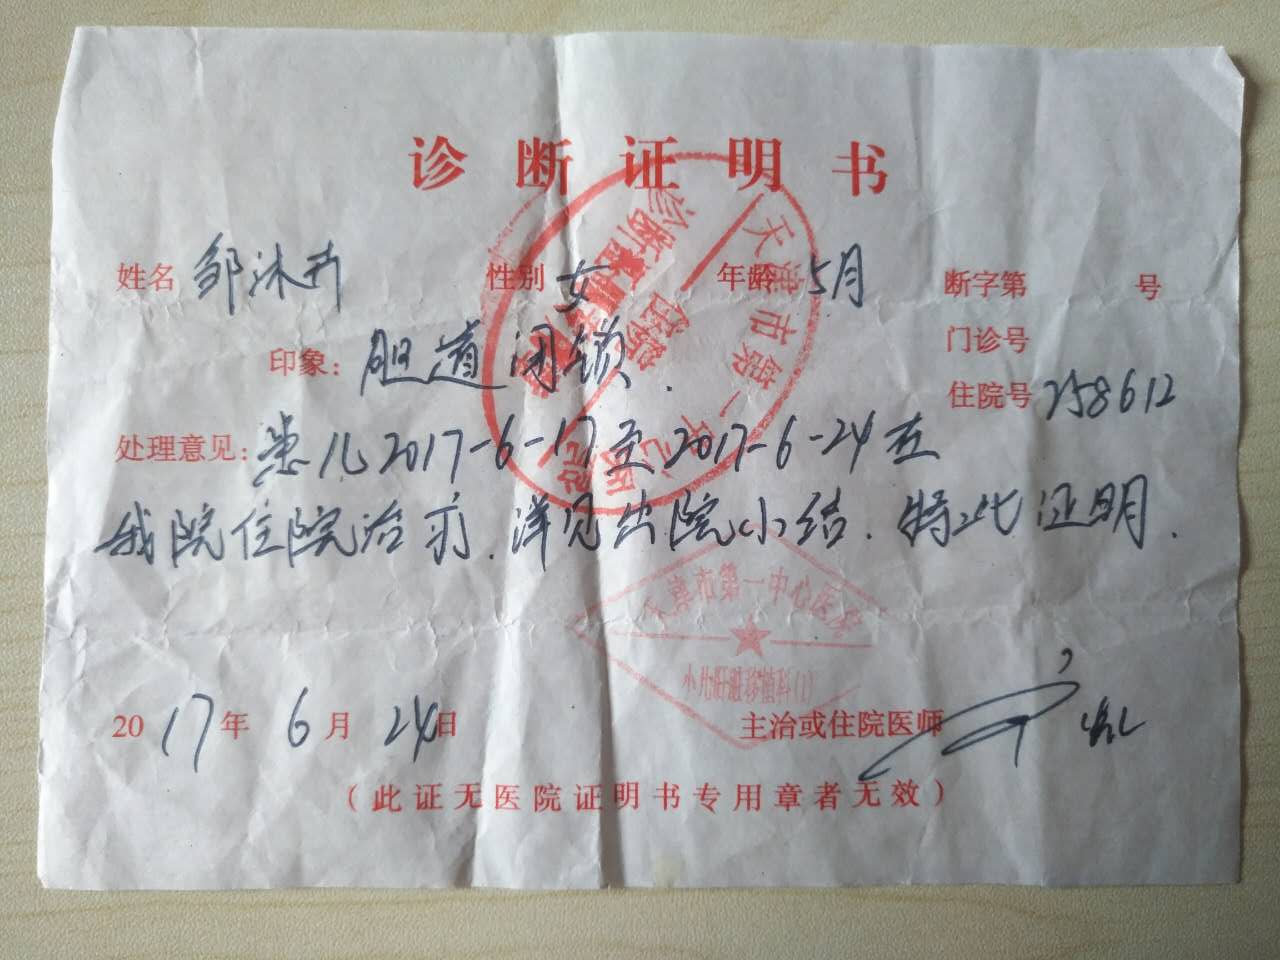 诊断证明书
姓名 邹沐卉 性别 女 年龄 5月 断字第 号
门诊号
印象：胆道闭锁. 住院号 258612
处理意见：患儿2017-6-17至2017-6-24在
我院住院治疗.详见出院小结.特此证明.
天津市第一中心医院
诊断证明
天津市第一中心医院
小儿肝脏移植科(1)
2017年6月24日 主治或住院医师
（此证无医院证明书专用章者无效）